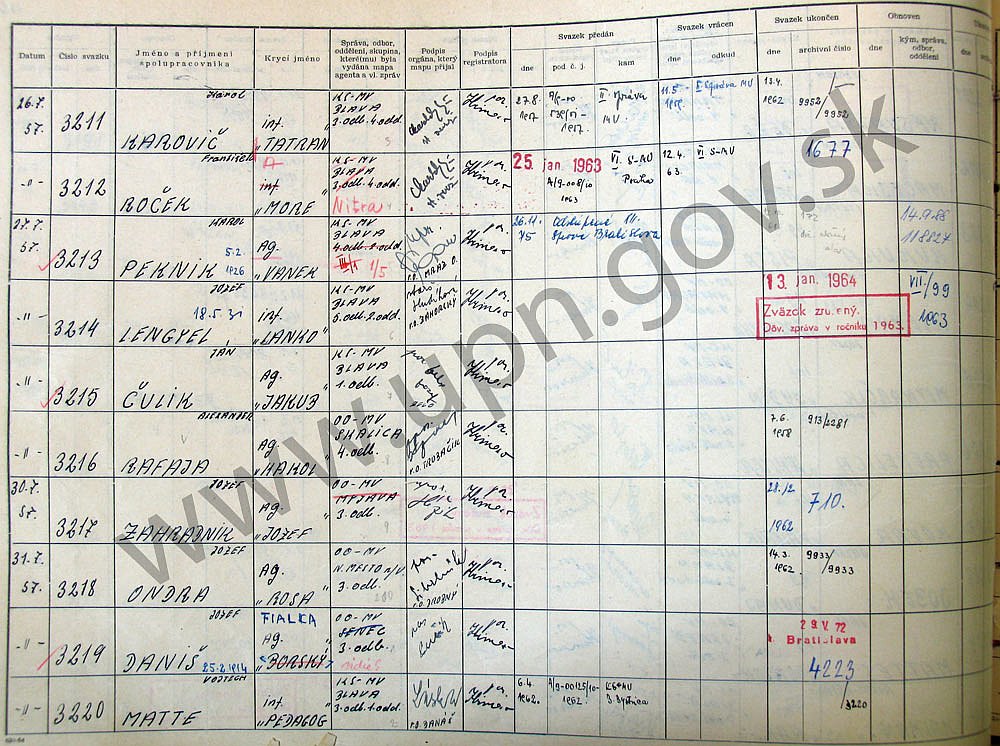 Datum
Číslo svazku
Jméno a příjmení
spolupracovníka
Krycí jméno
Správa, odbor,
oddělení, skupina,
které(mu) byla
vydána mapa
agenta a vl. zpráv
Podpis
orgána, který
mapu přijal
Podpis
registrátora
Svazek předán
dne
pod č. j.
kam
Svazek vrácen
dne
odkud
Svazek ukončen
dne
archivní číslo
Obnoven
dne
kým, správa,
odbor,
oddělení
dne
26.7.
57.
3211
Karol
KAROVIČ
inf.
"TATRAN"
KS-MV
BLAVA
3.odb.4.odd.
27.8.
1957
II. správa
MU.
11.5.
II Správa MV
13.4.
1962
9952/
9952
-"-
3212
František
ROČEK
inf.
"MORE"
KS-MV
BLAVA
3.odb.4.odd.
Nitra
25. jan. 1963
A/9-008/10
1963
VI. S-MU
Praha
12.4.
63.
VI S-MU
1677
27.7.
57.
3213
KAROL
PEKNÍK
5.2.
1926
Ag.
"VANEK"
KS-MV
BLAVA
4.odb.2.odd.
III/1 1/5
P.O. MRÁZ O.
26.11.
75
Odstúpené III.
Správe Bratislava
14.9.88
118827
-"-
3214
JOZEF
LENGYEL
18.5.31
inf.
"LANKO"
KS-MV
BLAVA
6.odb.2.odd.
P.O. ZÁHORSKÝ
13. jan. 1964
Zväzok zrušený.
Dôv. zpráva v ročníku 1963.
VII/99
1963
-"-
3215
JÁN
ČULÍK
Ag.
"JAKUB"
KS-MV
BLAVA
1.odb.
-"-
3216
ALEXANDER
RAFAJA
Ag.
"KAROL"
OO-MV
SKALICA
4.odb.
P.O. TRUBAČÍK
7.6.
1958
913/2281
30.7.
57.
3217
JOZEF
ZAHRADNÍK
Ag.
"JOZEF"
OO-MV
MYJAVA
3.odb.
28./2
1962
710.
31.7.
57.
3218
JOZEF
ONDRA
Ag.
"ROSA"
OO-MV
N.MESTO n/V
3.odb.
P.O. DROBNÝ
14.3.
1962
9933/
9933
-"-
3219
JOZEF
DANIŠ
25.2.1914
FIALKA
Ag.
"BORSKÍ"
OO-MV
SENEC
3.odb.
29.V.72
Bratislava
4223
-"-
3220
VOJTECH
MATTE
inf.
"PEDAGOG"
KS-MV
BLAVA
3.odb.1.odd.
P.O. BANÁŠ
6.4.
1962.
A/9-00125/10-
1962.
KS-MU
B. Bystrica
/3220
www.upn.gov.sk